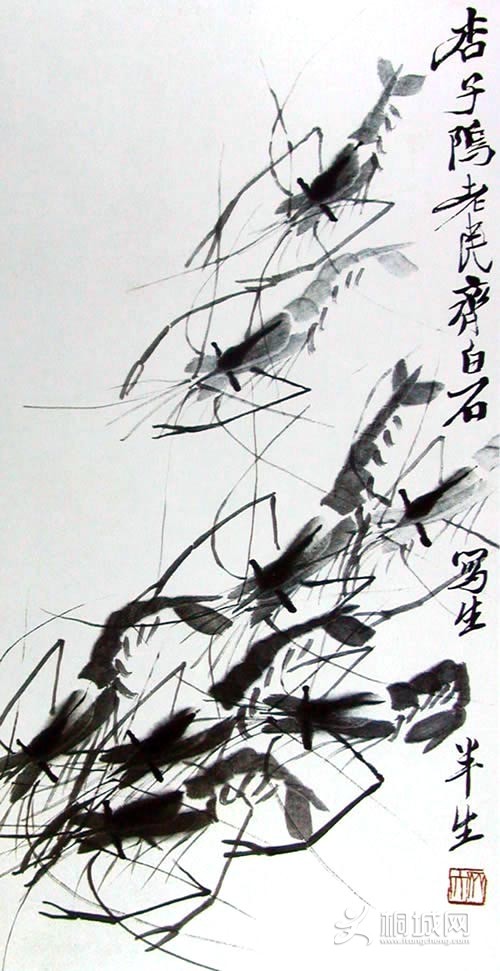 杏子隖老民齐白石
写生
半生
桐城网
www.itongcheng.com